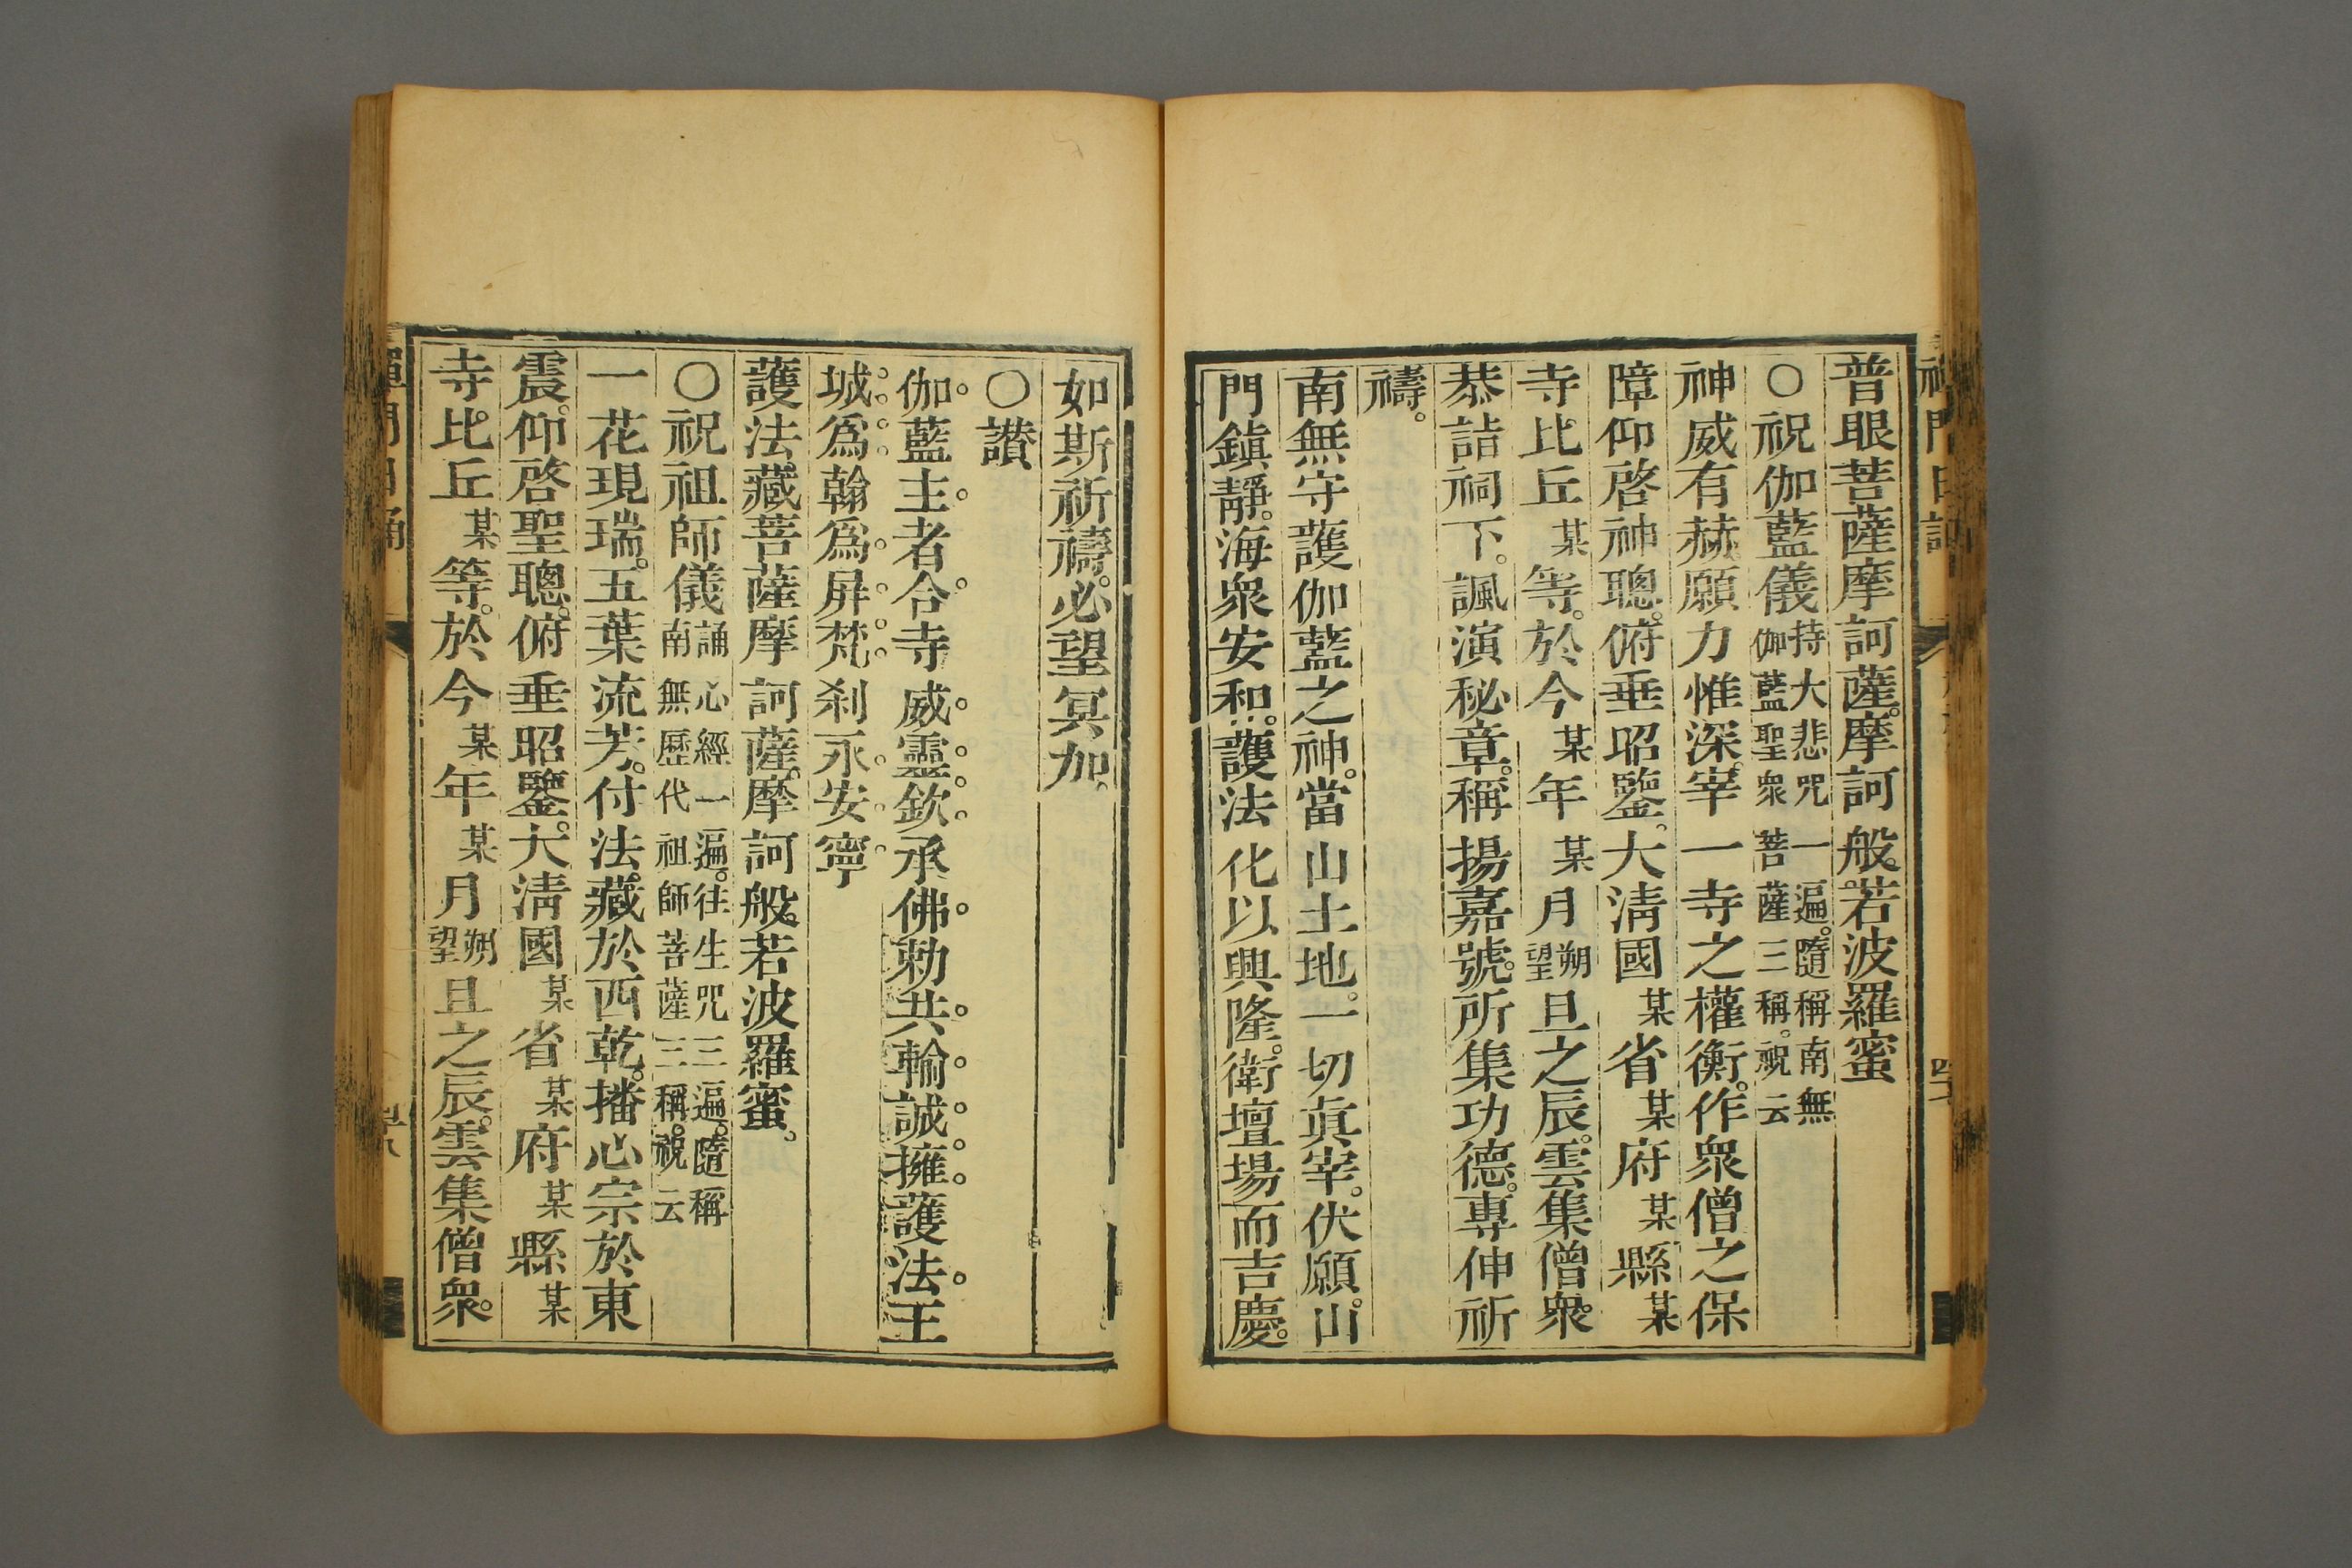 普眼菩薩摩訶薩。摩訶般若波羅蜜
〇祝伽藍儀持大悲咒一遍。隨稱南無伽藍聖衆菩薩三稱。祝云
神威有赫願力惟深。宰一寺之權衡。作衆僧之保
障仰啓神聰。俯垂昭鑒。大清國某省某府某縣某
寺。比丘某等。於今某年某月朔望旦之辰。雲集僧衆。
恭詣祠下。諷演秘章。稱揚嘉號。所集功德。專伸祈
禱。
南無守護伽藍之神。當山土地。一切眞宰。伏願。山
門鎭靜。海衆安和。護法化以興隆。衛壇場而吉慶。
如斯祈禱。必望冥加。
〇讃
伽藍主者合寺威靈欽承佛勅共輸誠擁護法王
城爲翰爲屏梵刹永安寧
護法藏菩薩摩訶薩。摩訶般若波羅蜜。
〇祝祖師儀誦心經一遍。往生咒三遍。隨稱南無歷代祖師菩薩三稱。祝云
一花現瑞。五葉流芳。付法藏於西乾。播心宗於東
震。仰啓聖聰。俯垂昭鑒。大清國某省某府某縣某
寺。比丘某等。於今某年某月朔望旦之辰。雲集僧衆。